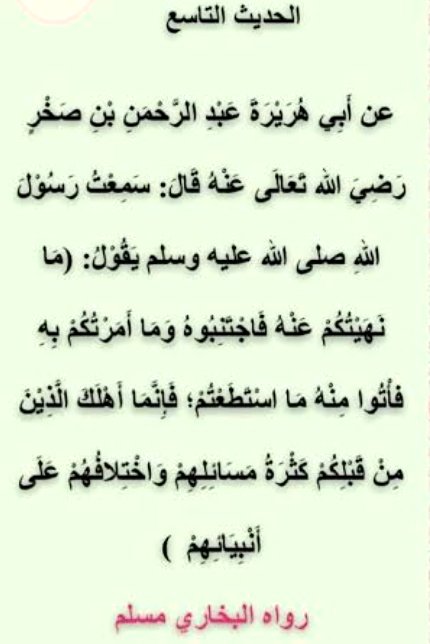 الحديث التاسع
عن أَبِي هُرَيْرَةَ عَبْدِ الرَّحْمَنِ بْنِ صَخْرٍ
رَضِيَ الله تَعَالَى عَنْهُ قَالَ: سَمِعْتُ رَسُوْلَ
اللهِ صلى الله عليه وسلم يَقُوْلُ: (مَا
نَهَيْتُكُمْ عَنْهُ فَاجْتَنِبُوهُ وَمَا أَمَرْتُكُمْ بِهِ
فأْتُوا مِنْهُ مَا اسْتَطَعْتُمْ؛ فَإِنَّمَا أَهْلَكَ الَّذِيْنَ
مِنْ قَبْلِكُمْ كَثْرَةُ مَسَائِلِهِمْ وَاخْتِلافُهُمْ عَلَى
أَنْبِيَائِهِمْ )
رواه البخاري مسلم